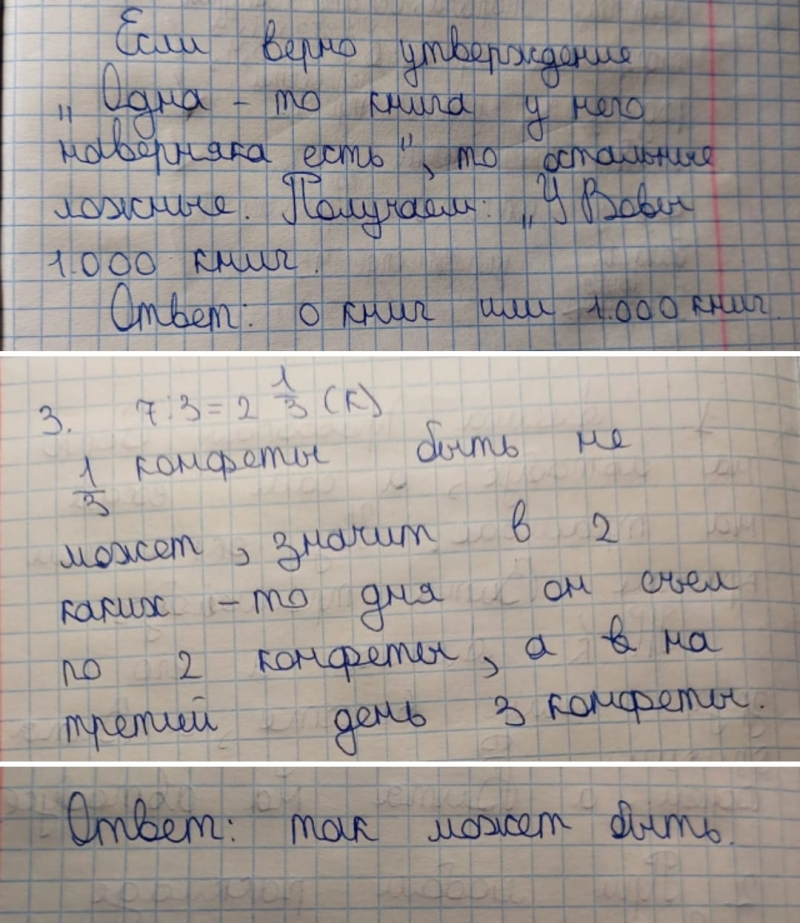 Если верно утверждение
„Одна - то книга у него
наверняка есть", то остальные
ложные. Получаем: „У Вовы
1.000 книг.
Ответ: 0 книг или 1.000 книг.
3. 7:3=2 1/3 (к)
1/3 конфеты быть не
может, значит в 2
каких - то дня он съел
по 2 конфеты, а в на
третий день 3 конфеты.
Ответ: так может быть.